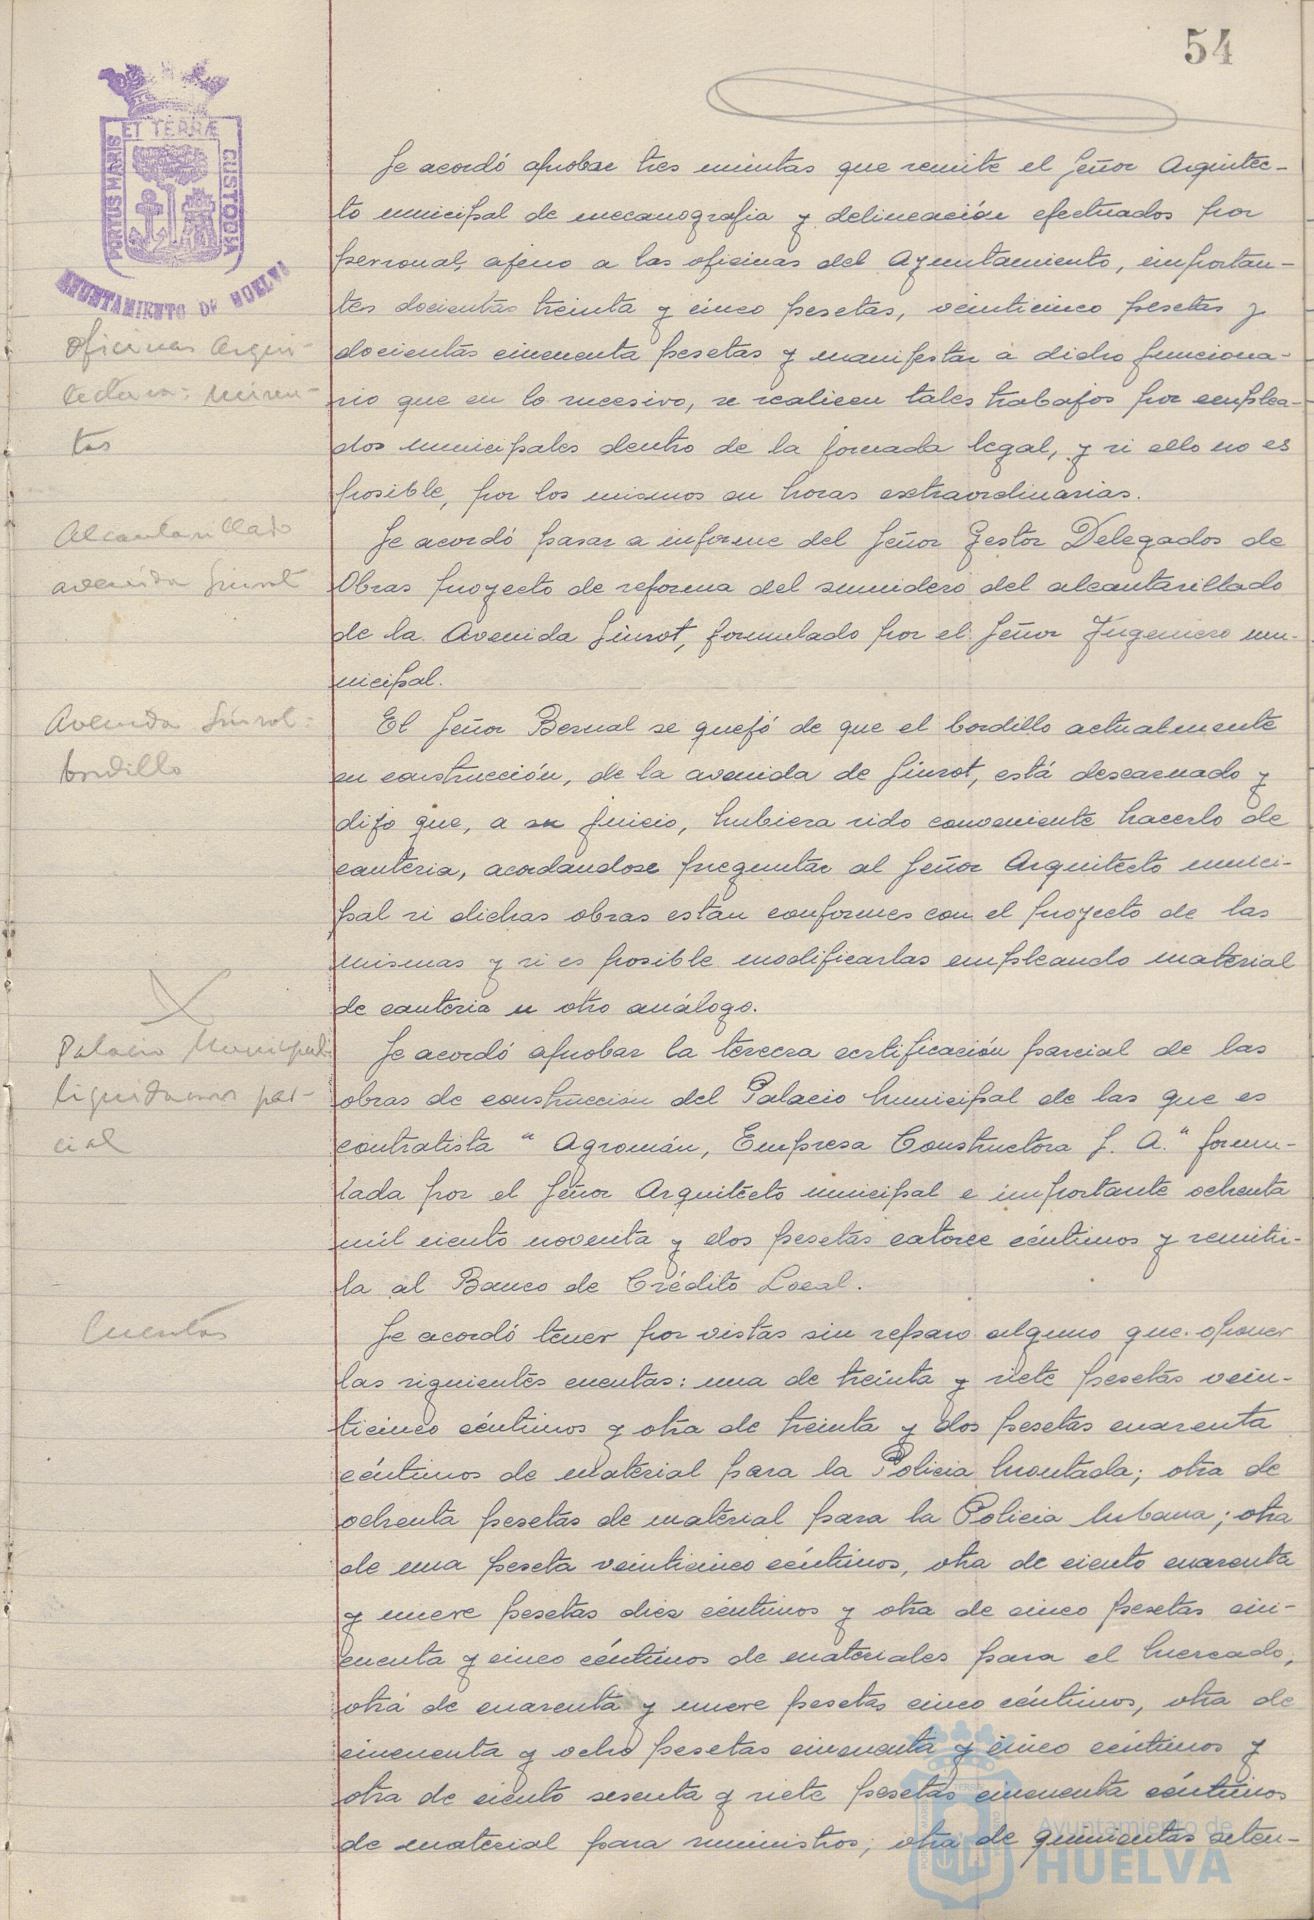 54
PORTUS MARIS ET TERRÆ CUSTODIA
AYUNTAMIENTO DE HUELVA
Se acordó aprobar tres minutas que remite el Señor Arquitec-
to municipal de mecanografia y delineación efectuados por
personal, ajeno a las oficinas del Ayuntamiento, importan-
tes docientas treinta y cinco pesetas, veinticinco pesetas y
Oficinas Arqui-
docientas cincuenta pesetas y manifestar a dicho funciona-
tectura: minu-
rio que en lo sucesivo, se realicen tales trabajos por emplea-
tas
dos municipales dentro de la jornada legal, y si ello no es
posible, por los mismos en horas extraordinarias.
Alcantarillado
Se acordó pasar a informe del Señor Gestor Delegados de
avenida Siurot
Obras proyecto de reforma del sumidero del alcantarillado
de la Avenida Siurot, formulado por el Señor Ingeniero mu-
nicipal.
Avenida Siurot:
El Señor Bernal se quejó de que el bordillo actualmente
bordillo
en construcción, de la avenida de Siurot, está descarnado y
dijo que, a su juicio, hubiera sido conveniente hacerlo de
canteria, acordandose preguntar al Señor Arquitecto munici-
pal si dichas obras estan conformes con el proyecto de las
mismas y si es posible modificarlas empleando material
de canteria u otro análogo.
Palacio Municipal:
Se acordó aprobar la tercera certificación parcial de las
liquidacion par-
obras de construccion del Palacio Municipal de las que es
cial
contratista " Agromán, Empresa Constructora S. A." formu-
lada por el Señor Arquitecto municipal e importante ochenta
mil ciento noventa y dos pesetas catorce céntimos y remitir-
la al Banco de Crédito Local.
Cuentas
Se acordó tener por vistas sin reparo alguno que oponer
las siguientes cuentas: una de treinta y siete pesetas vein-
ticinco céntimos y otra de treinta y dos pesetas cuarenta
céntimos de material para la Policia Montada; otra de
ochenta pesetas de material para la Policia Urbana; otra
de una peseta veinticinco céntimos, otra de ciento cuarenta
y nueve pesetas diez céntimos y otra de cinco pesetas cin-
cuenta y cinco céntimos de materiales para el Mercado,
otra de cuarenta y nueve pesetas cinco céntimos, otra de
cincuenta y ocho pesetas cincuenta y cinco céntimos y
otra de ciento sesenta y siete pesetas cincuenta céntimos
de material para suministros; otra de quinientas seten-
Ayuntamiento de
HUELVA